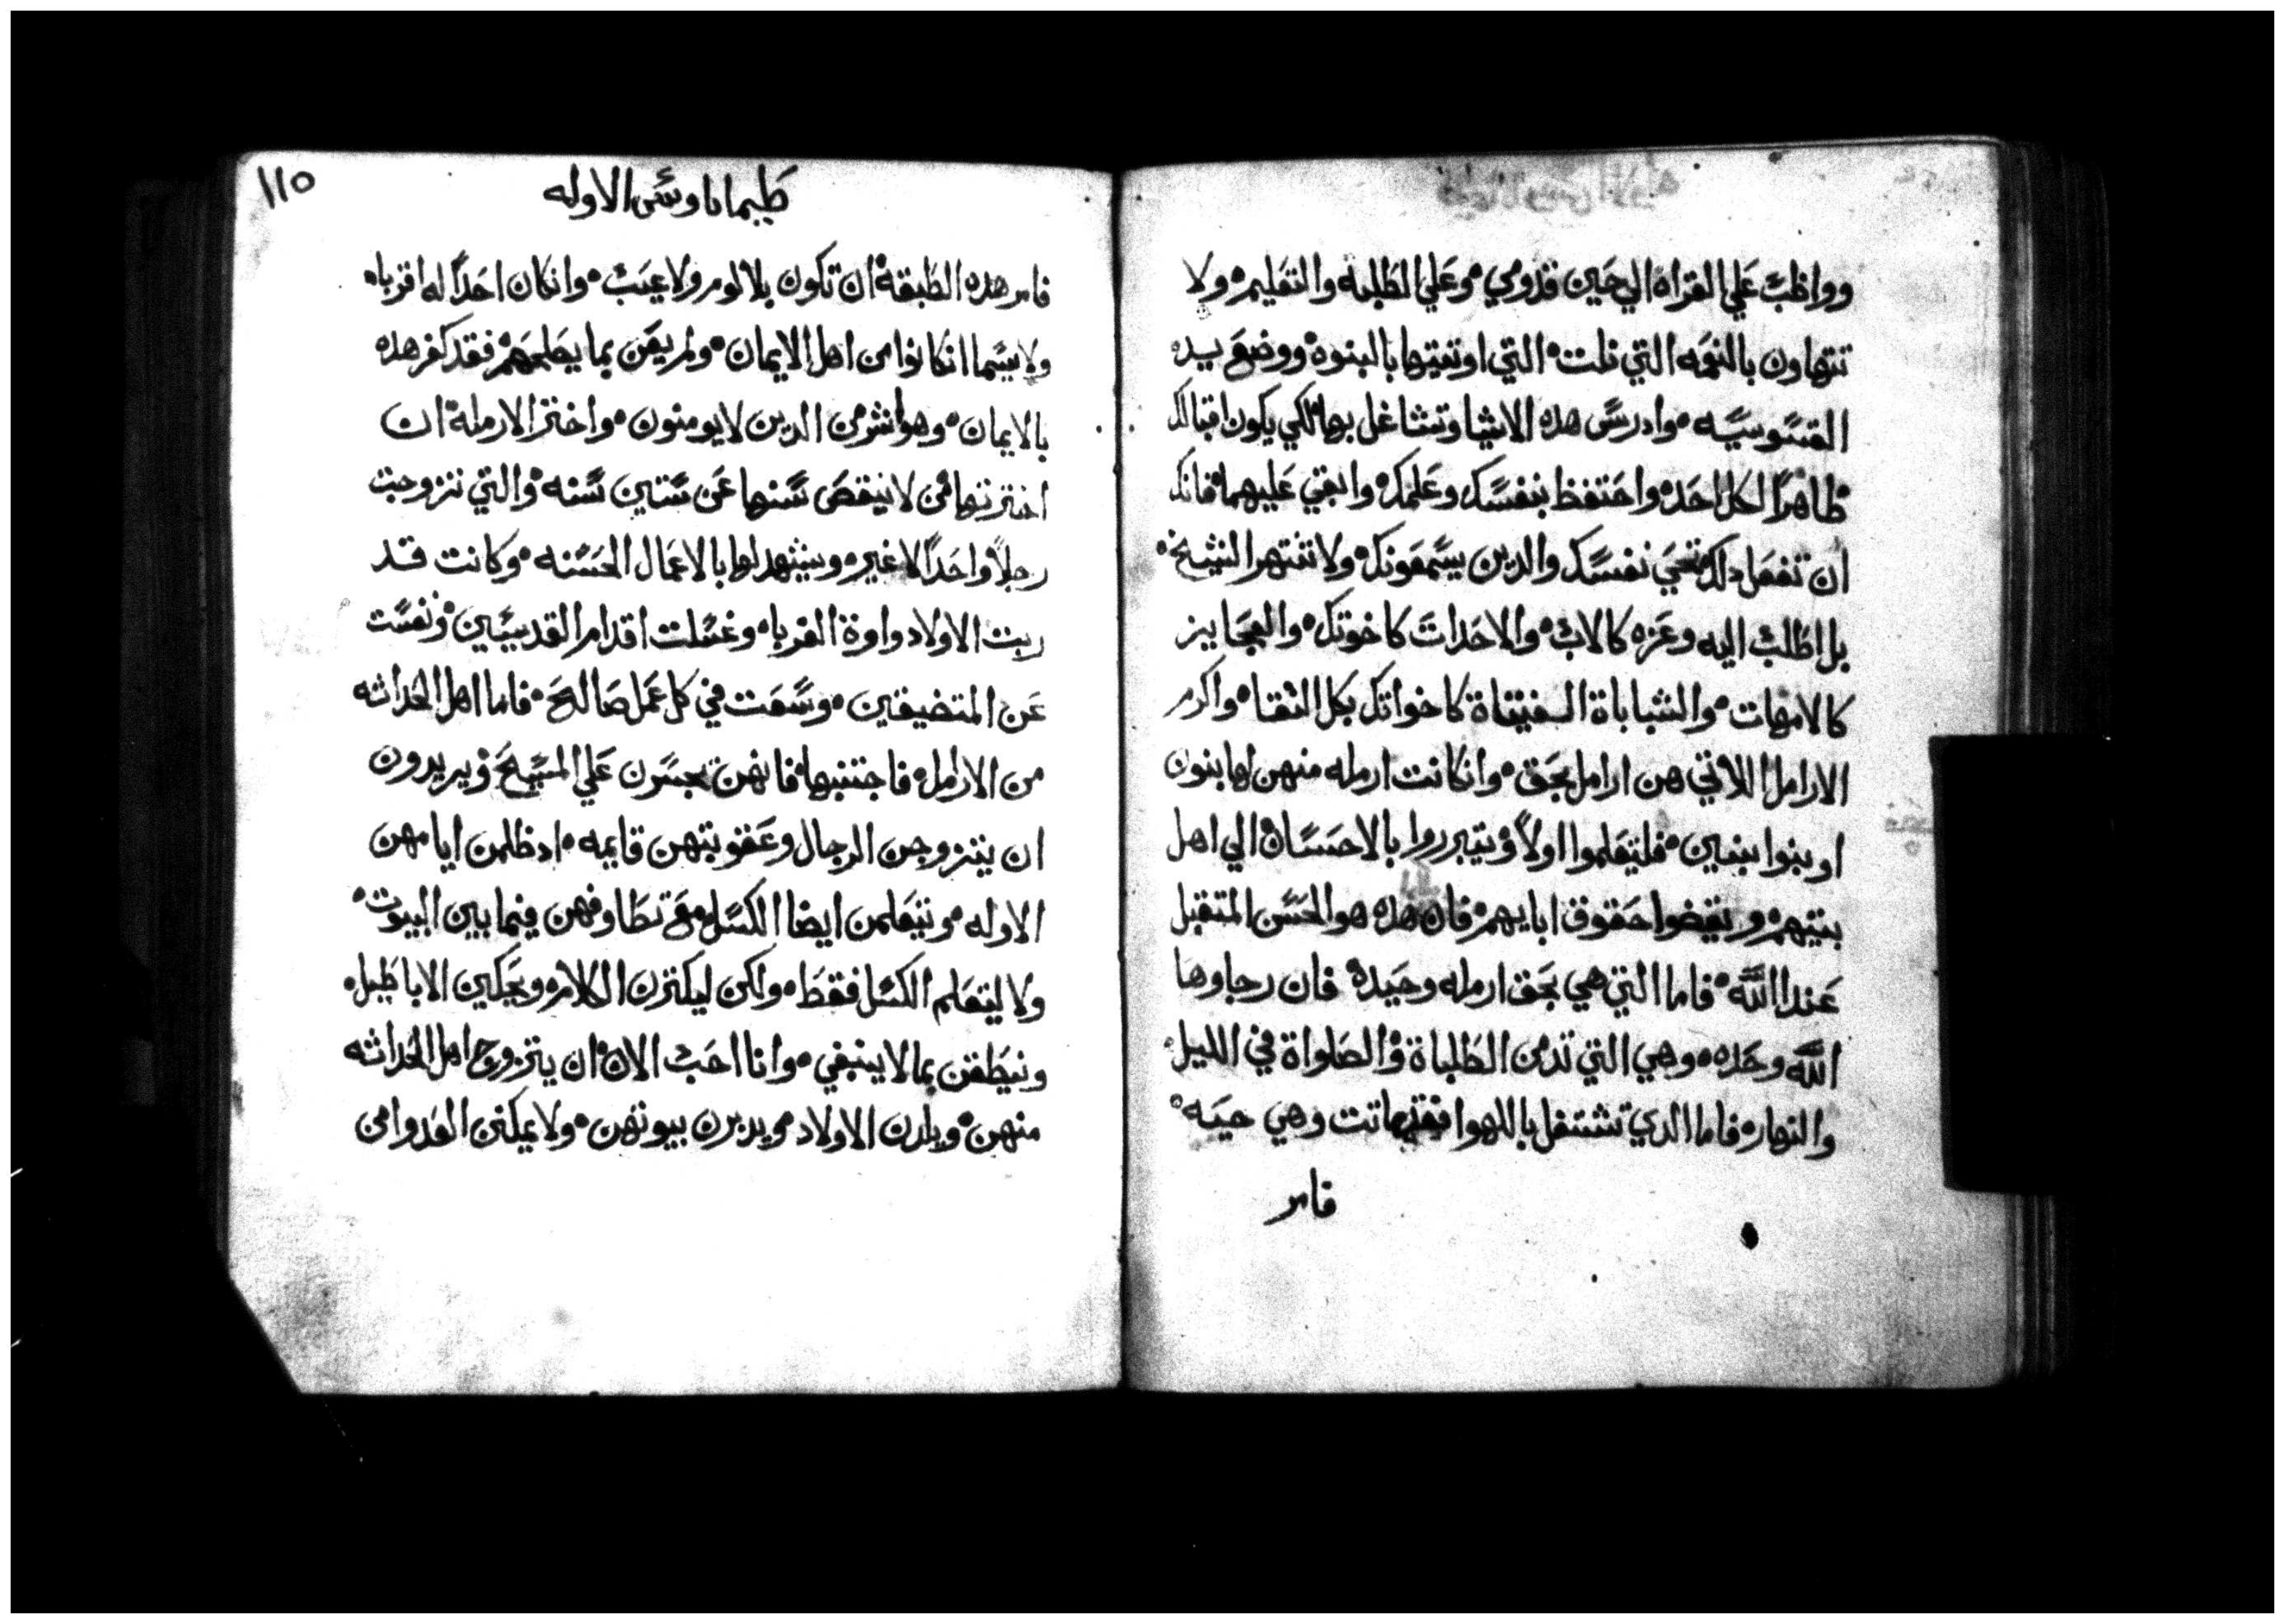 وواظبْ عَلي القراه الي حَين قدومي وعَلي الطلبه والتعَليم ولا
تتهاون بالنعَمه التي نلت التي اوتيتها بالبنوه ووضعَ يده
القسوسيه وادرسَ هده الاشيا وتشاغل بها لكي يكون اقبالك
ظاهرًا لكل احَد واحَتفظ بنفسَك وعَلمك وابقي عَليهما فانك
ان تفعَل دلك تحَي نفسَك والدين يسَمعَونك ولا تنتهر الشيخ
بل اطلبْ اليه وعَزه كالابْ والاحَداتَ كاخوتك والعجَايز
كالامهات والشباباة الفيتاة كاخواتك بكل النقا واكرم
الارامل اللاتي هن ارامل بحَق وان كانت ارمله منهن لها بنون
او بنوا بنين فليتعَلموا اولاً ويتبرروا بالاحَسَان الي اهل
بيتهم ويقضوا حَقوق ابايهم فان هده هو الحَسَن المتقبل
عَند الله فاما التي هي بحَق ارمله وحَيده فان رجاوها
الله وحَده وهي التي تدمن الطلباة والصَلواة في الليل
والنهار فاما الدي تشتغل باللهوا فقد ماتت وهي حيَه
فامر
١١٥
طيماتاوسَ الاوله
فامر هده الطبقة ان تكون بلا لوم ولا عيَبْ وان كان احَدًا له اقرباه
ولا سيَما ان كانوا من اهل الايمان ولم يعَن بما يصَلحَهم فقد كفر هده
بالايمان وهو اشر من الدين لا يومنون واختر الارملة ان
اخترتها من لا ينقصَ سَنها عَن سَتين سَنه والتي تزوجت
رجلاً واحَدًا لا غير ويشهد لها بالاعَمال الحَسَنه وكانت قد
ربت الاولاد واوة الغرباه وغسَلت اقدام القديسَين ونفسَت
عَن المتضيقين وسَعَت في كل عَمل صَالحَ فاما اهل الحَداثه
من الارامل فاجتنبها فانهن يجسَرن عَلي المسَيحَ ويريدون
ان يتزوجن الرجال وعَقوبتهن قايمه اد ظلمن ايامهن
الاوله ويتعَلمن ايضا الكسَل معَ تطاوفهن فيما بين البيوت
ولا ليتعَلم الكسَل فقط ولكن ليكترن الكلام ويحَكين الاباطيل
وينطقن بما لا ينبغي وانا احَبْ الان ان يتزوج اهل الحَداثه
منهن ويلدن الاولاد ويدبرن بيوتهن ولا يمكن العَدو من